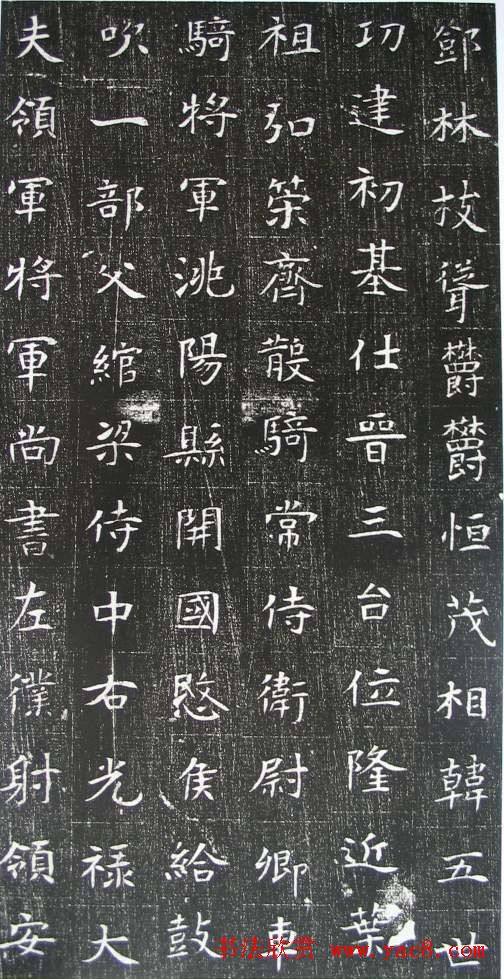 鄧林枝聳欝欝恒茂相韓五世
功建初基仕晉三台位隆近葉
祖弘策齊散騎常侍衛尉卿車
騎將軍洮陽縣開國愍侯給鼓
吹一部父綰梁侍中右光禄大
夫領軍將軍尚書左僕射領安
书法欣赏 www.yac8.com